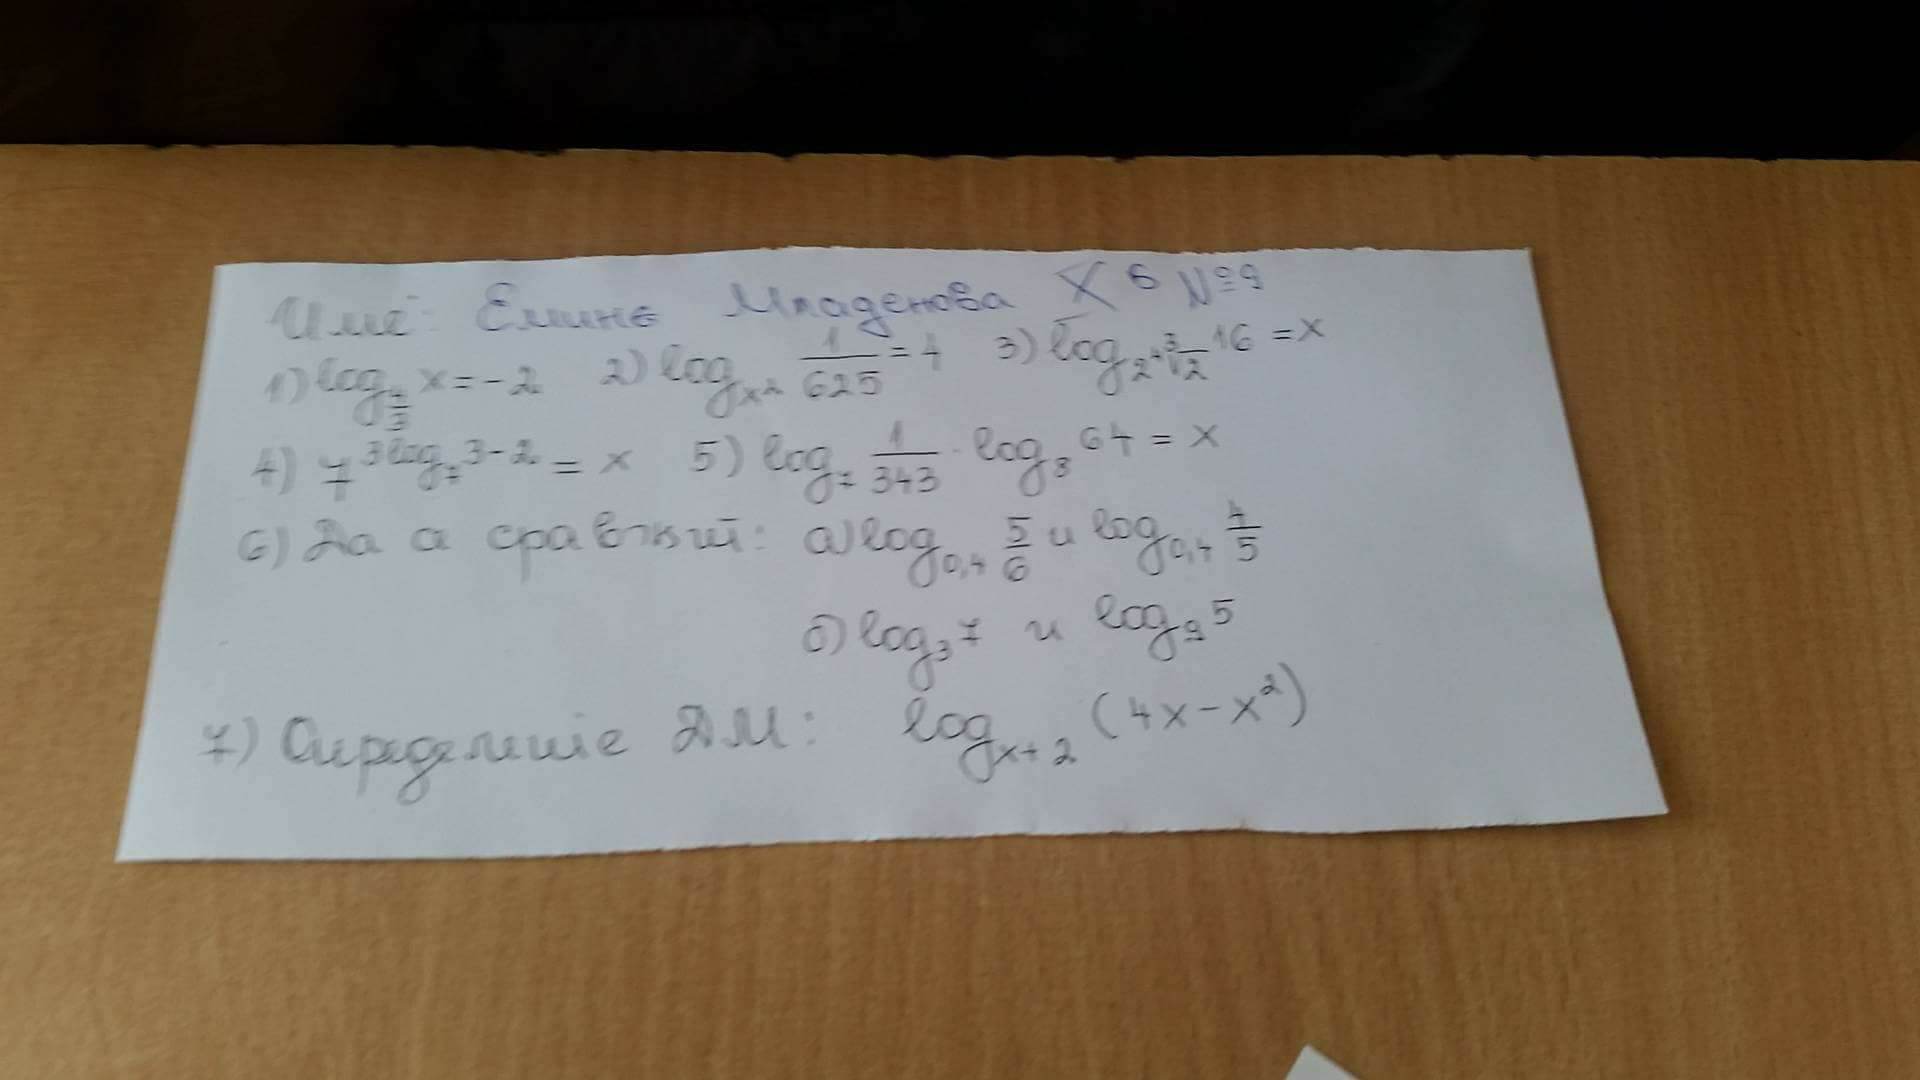 Име: Емине Младенова X б №9
1) log_{7/3} x = -2 2) log_{x²} 1/625 = 4 3) log_{2·∛2} 16 = x
4) 7^{3log₇3-2} = x 5) log₇ 1/343 · log₈ 64 = x
6) Да а сравнит: а) log_{0,4} 5/6 и log_{0,4} 4/5
б) log₃ 7 и log₉ 5
7) Определите ДМ: log_{x+2} (4x - x²)